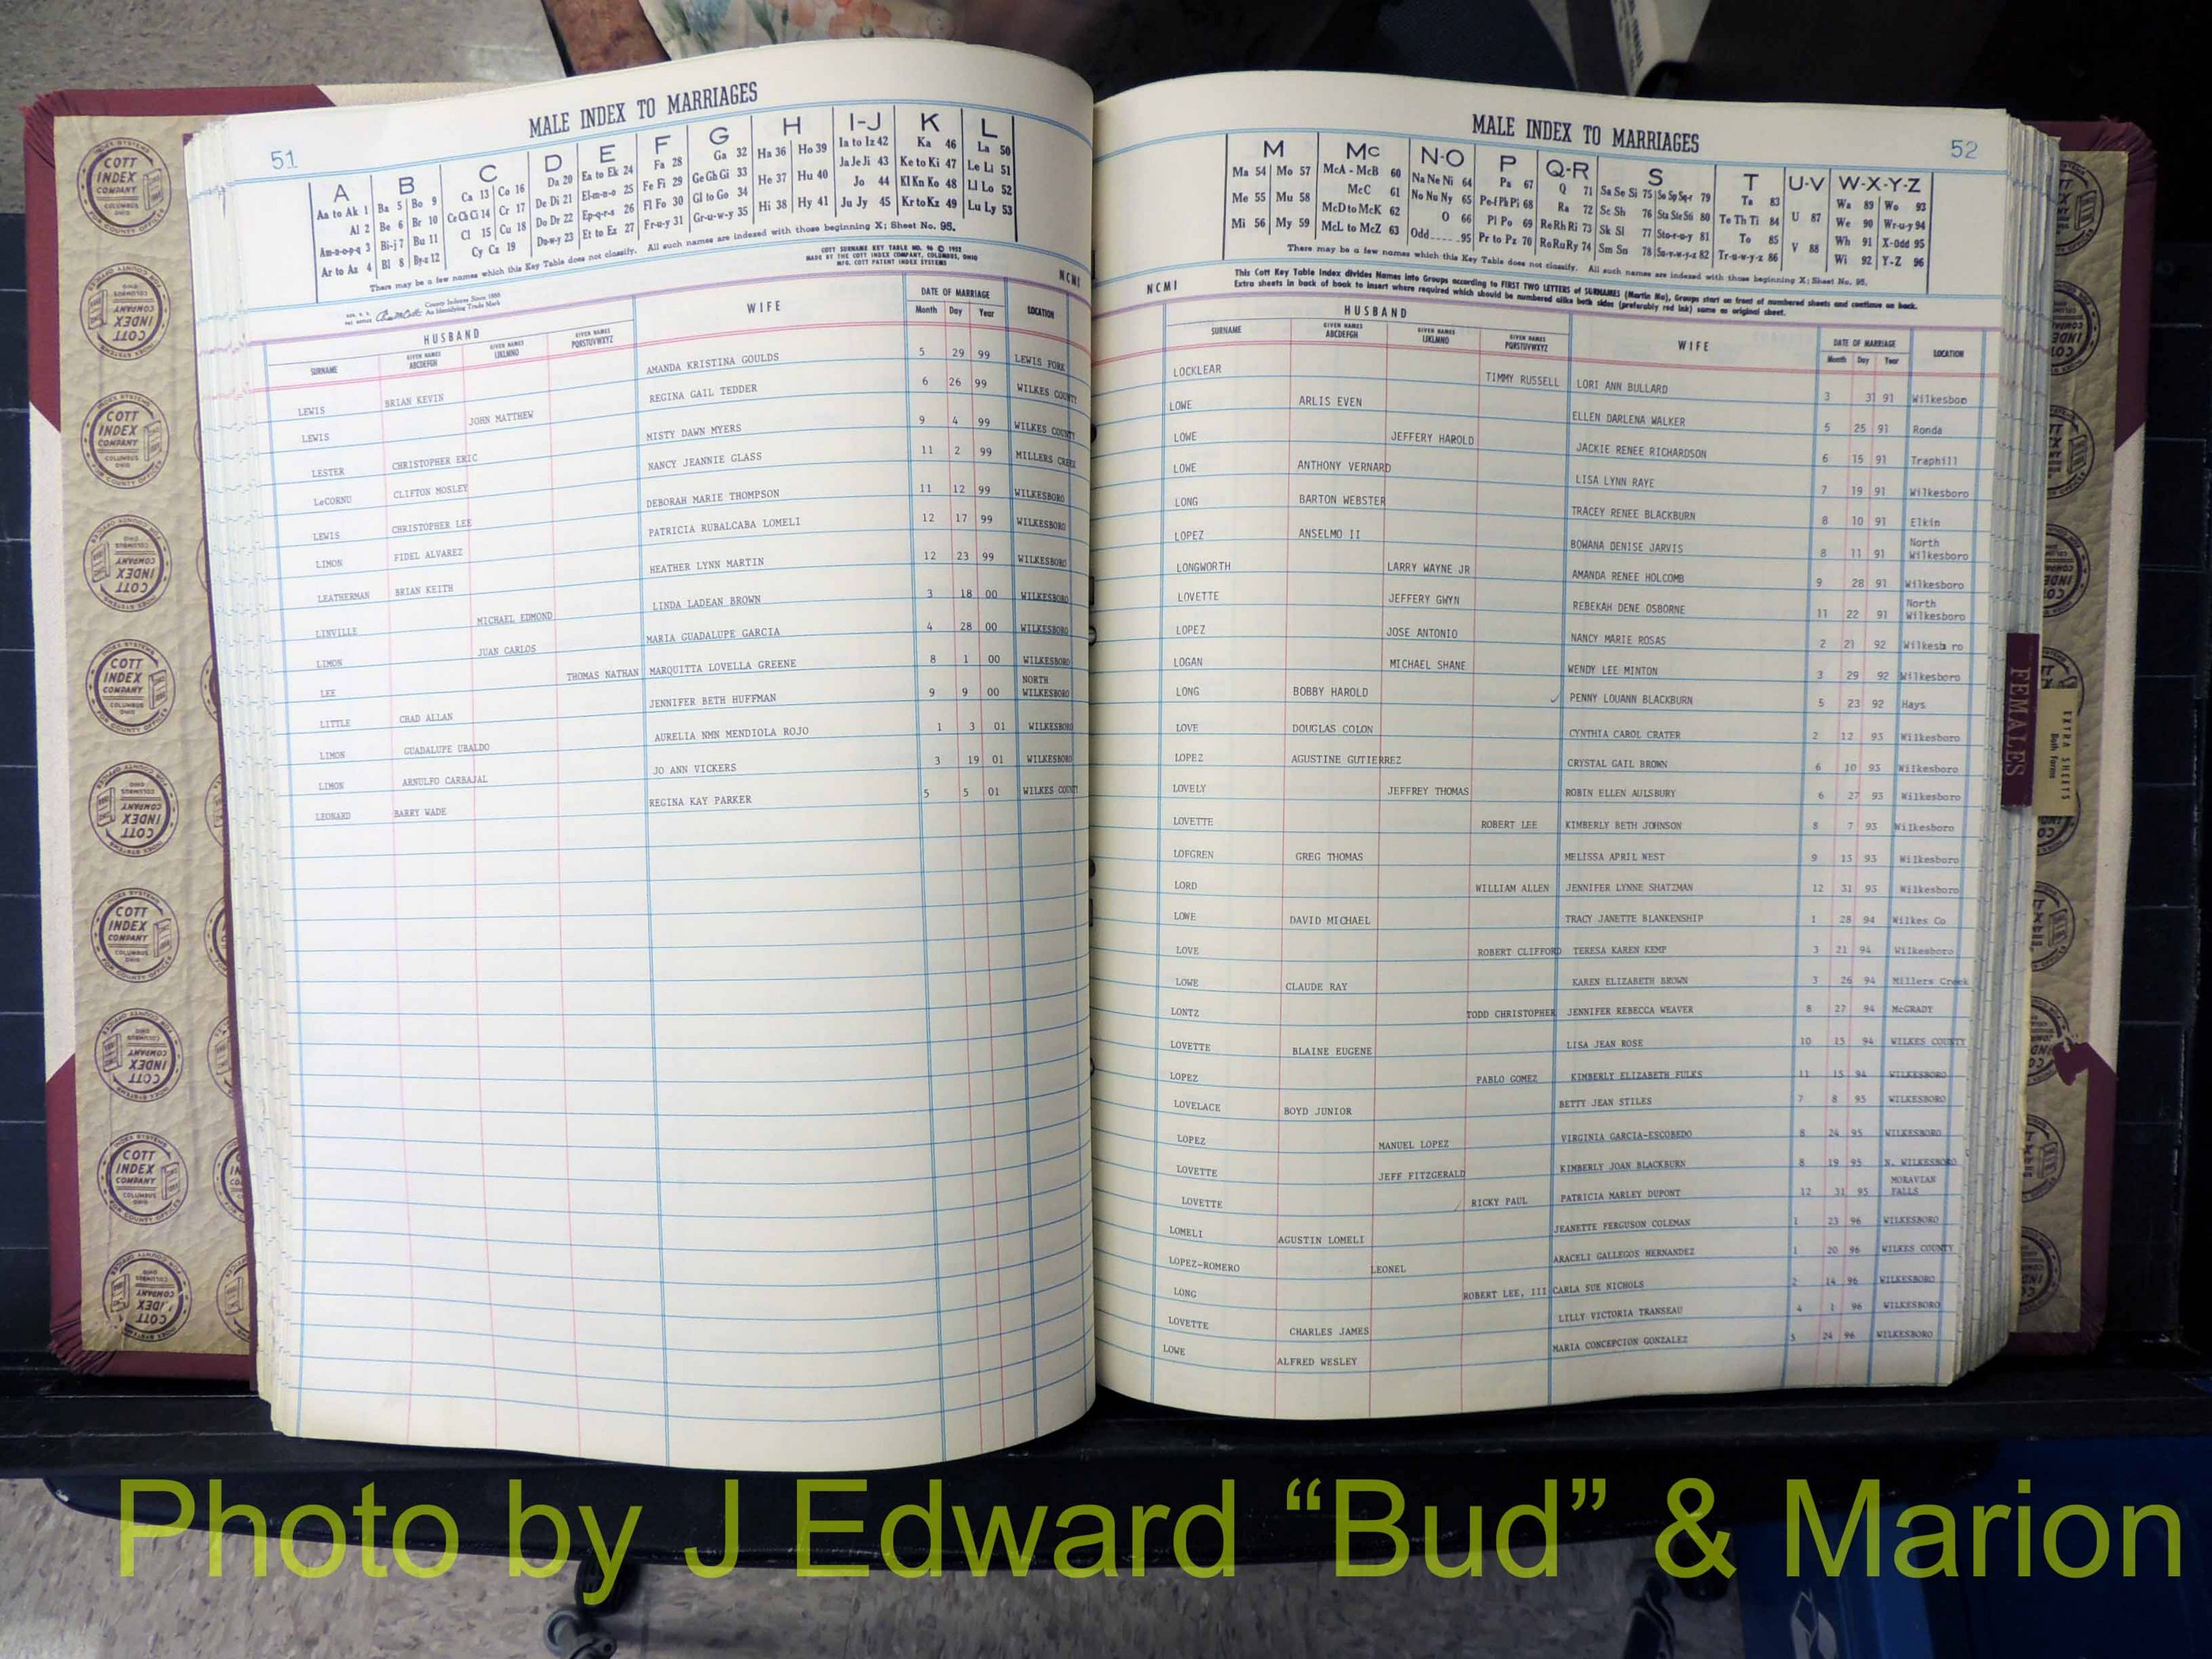 MALE INDEX TO MARRIAGES
51
A B C D E F G H I-J K L
Aa to Ak 1 Ba 5 Bo 9 Ca 13 Co 16 Da 20 Ea to Ek 24 Fa 28 Ga 32 Ha 36 Ho 39 Ia to Iz 42 Ka 46 La 50
Al 2 Be 6 Br 10 Ce Ch Ci 14 Cr 17 De Di 21 El-m-n-o 25 Fe Fi 29 Ge Gh Gi 33 He 37 Hu 40 Ja Je Ji 43 Ke to Ki 47 Le Li 51
Am-n-o-p-q 3 Bi-j 7 Bu 11 Cl 15 Cu 18 Do Dr 22 Ep-q-r-s 26 Fl Fo 30 Gl to Go 34 Hi 38 Hy 41 Jo 44 Kl Kn Ko 48 Ll Lo 52
Ar to Az 4 Bl 8 By-z 12 Cy Cz 19 Du-w-y 23 Et to Ez 27 Fr-u-y 31 Gr-u-w-y 35 Ju Jy 45 Kr to Kz 49 Lu Ly 53
There may be a few names which this Key Table does not classify. All such names are indexed with those beginning X; Sheet No. 95.
COTT SURNAME KEY TABLE NO. 96 © 1952
MADE BY THE COTT INDEX COMPANY, COLUMBUS, OHIO
MFG. COTT PATENT INDEX SYSTEMS
County Indexes Since 1888
An Identifying Trade Mark
NCMI
HUSBAND WIFE DATE OF MARRIAGE LOCATION
SURNAME GIVEN NAMES ABCDEFGH GIVEN NAMES IJKLMNO GIVEN NAMES PQRSTUVWXYZ Month Day Year
LEWIS BRIAN KEVIN AMANDA KRISTINA GOULDS 5 29 99 LEWIS FORK
LEWIS JOHN MATTHEW REGINA GAIL TEDDER 6 26 99 WILKES COUNTY
LESTER CHRISTOPHER ERIC MISTY DAWN MYERS 9 4 99 WILKES COUNTY
LeCORNU CLIFTON MOSLEY NANCY JEANNIE GLASS 11 2 99 MILLERS CREEK
LEWIS CHRISTOPHER LEE DEBORAH MARIE THOMPSON 11 12 99 WILKESBORO
LIMON FIDEL ALVAREZ PATRICIA RUBALCABA LOMELI 12 17 99 WILKESBORO
LEATHERMAN BRIAN KEITH HEATHER LYNN MARTIN 12 23 99 WILKESBORO
LINVILLE MICHAEL EDMOND LINDA LADEAN BROWN 3 18 00 WILKESBORO
LIMON JUAN CARLOS MARIA GUADALUPE GARCIA 4 28 00 WILKESBORO
LEE THOMAS NATHAN MARQUITTA LOVELLA GREENE 8 1 00 WILKESBORO
LITTLE CHAD ALLAN JENNIFER BETH HUFFMAN 9 9 00 NORTH WILKESBORO
LIMON GUADALUPE UBALDO AURELIA NMN MENDIOLA ROJO 1 3 01 WILKESBORO
LIMON ARNULFO CARBAJAL JO ANN VICKERS 3 19 01 WILKESBORO
LEONARD BARRY WADE REGINA KAY PARKER 5 5 01 WILKES COUNTY
MALE INDEX TO MARRIAGES
52
M Mc N-O P Q-R S T U-V W-X-Y-Z
Ma 54 Mo 57 McA - McB 60 Na Ne Ni 64 Pa 67 Q 71 Sa Se Si 75 So Sp Sq-r 79 Ta 83 Wa 89 Wo 93
Me 55 Mu 58 McC 61 No Nu Ny 65 Pe-f Ph Pi 68 Ra 72 Sc Sh 76 Sta Ste Sti 80 Te Th Ti 84 U 87 We 90 Wr-u-y 94
Mi 56 My 59 McD to McK 62 O 66 Pl Po 69 Re Rh Ri 73 Sk Sl 77 Sto-r-u-y 81 To 85 Wh 91 X-Odd 95
McL to McZ 63 Odd 95 Pr to Pz 70 Ro Ru Ry 74 Sm Sn 78 Su-v-w-y-z 82 Tr-u-w-y-z 86 V 88 Wi 92 Y-Z 96
There may be a few names which this Key Table does not classify. All such names are indexed with those beginning X; Sheet No. 95.
This Cott Key Table Index divides Names into Groups according to FIRST TWO LETTERS of SURNAMES (Martin Ma), Groups start on front of numbered sheets and continue on back.
Extra sheets in back of book to insert where required which should be numbered alike both sides (preferably red ink) same as original sheet.
NCMI
HUSBAND WIFE DATE OF MARRIAGE LOCATION
SURNAME GIVEN NAMES ABCDEFGH GIVEN NAMES IJKLMNO GIVEN NAMES PQRSTUVWXYZ Month Day Year
LOCKLEAR TIMMY RUSSELL LORI ANN BULLARD 3 31 91
LOWE ARLIS EVEN ELLEN DARLENA WALKER 5 25 91 Ronda
LOWE JEFFERY HAROLD JACKIE RENEE RICHARDSON 6 15 91 Traphill
LOWE ANTHONY VERNARD LISA LYNN RAYE 7 19 91 Wilkesboro
LONG BARTON WEBSTER TRACEY RENEE BLACKBURN 8 10 91 Elkin
LOPEZ ANSELMO II BOWANA DENISE JARVIS 8 11 91 North Wilkesboro
LONGWORTH LARRY WAYNE JR AMANDA RENEE HOLCOMB 9 28 91 Wilkesboro
LOVETTE JEFFERY GWYN REBEKAH DENE OSBORNE 11 22 91 North Wilkesboro
LOPEZ JOSE ANTONIO NANCY MARIE ROSAS 2 21 92 Wilkesb ro
LOGAN MICHAEL SHANE WENDY LEE MINTON 3 29 92 Wilkesboro
LONG BOBBY HAROLD ✓ PENNY LOUANN BLACKBURN 5 23 92 Hays
LOVE DOUGLAS COLON CYNTHIA CAROL CRATER 2 12 93 Wilkesboro
LOPEZ AGUSTINE GUTIERREZ CRYSTAL GAIL BROWN 6 10 93 Wilkesboro
LOVELY JEFFREY THOMAS ROBIN ELLEN AULSBURY 6 27 93 Wilkesboro
LOVETTE ROBERT LEE KIMBERLY BETH JOHNSON 8 7 93 Wilkesboro
LOFGREN GREG THOMAS MELISSA APRIL WEST 9 13 93 Wilkesboro
LORD WILLIAM ALLEN JENNIFER LYNNE SHATZMAN 12 31 93 Wilkesboro
LOWE DAVID MICHAEL TRACY JANETTE BLANKENSHIP 1 28 94 Wilkes Co
LOVE ROBERT CLIFFORD TERESA KAREN KEMP 3 21 94 Wilkesboro
LOWE CLAUDE RAY KAREN ELIZABETH BROWN 3 26 94 Millers Creek
LONTZ TODD CHRISTOPHER JENNIFER REBECCA WEAVER 8 27 94 McGRADY
LOVETTE BLAINE EUGENE LISA JEAN ROSE 10 15 94 WILKES COUNTY
LOPEZ PABLO GOMEZ KIMBERLY ELIZABETH FULKS 11 15 94 WILKESBORO
LOVELACE BOYD JUNIOR BETTY JEAN STILES 7 8 95 WILKESBORO
LOPEZ MANUEL LOPEZ VIRGINIA GARCIA-ESCOBEDO 8 24 95 WILKESBORO
LOVETTE JEFF FITZGERALD KIMBERLY JOAN BLACKBURN 8 19 95 N. WILKESBORO
LOVETTE RICKY PAUL PATRICIA MARLEY DUPONT 12 31 95 MORAVIAN FALLS
LOMELI AGUSTIN LOMELI JEANETTE FERGUSON COLEMAN 1 23 96 WILKESBORO
LOPEZ-ROMERO LEONEL ARACELI GALLEGOS HERNANDEZ 1 20 96 WILKES COUNTY
LONG ROBERT LEE, III CARLA SUE NICHOLS 2 14 96 WILKESBORO
LOVETTE CHARLES JAMES LILLY VICTORIA TRANSEAU 4 1 96 WILKESBORO
LOWE ALFRED WESLEY MARIA CONCEPCION GONZALEZ 5 24 96 WILKESBORO
FEMALES
EXTRA SHEETS
Both Forms
COTT INDEX COMPANY
COLUMBUS OHIO
INDEX SYSTEMS
FOR COUNTY OFFICES
Photo by J Edward “Bud” & Marion